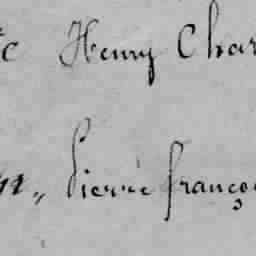 Henry Char
Pierre françoi